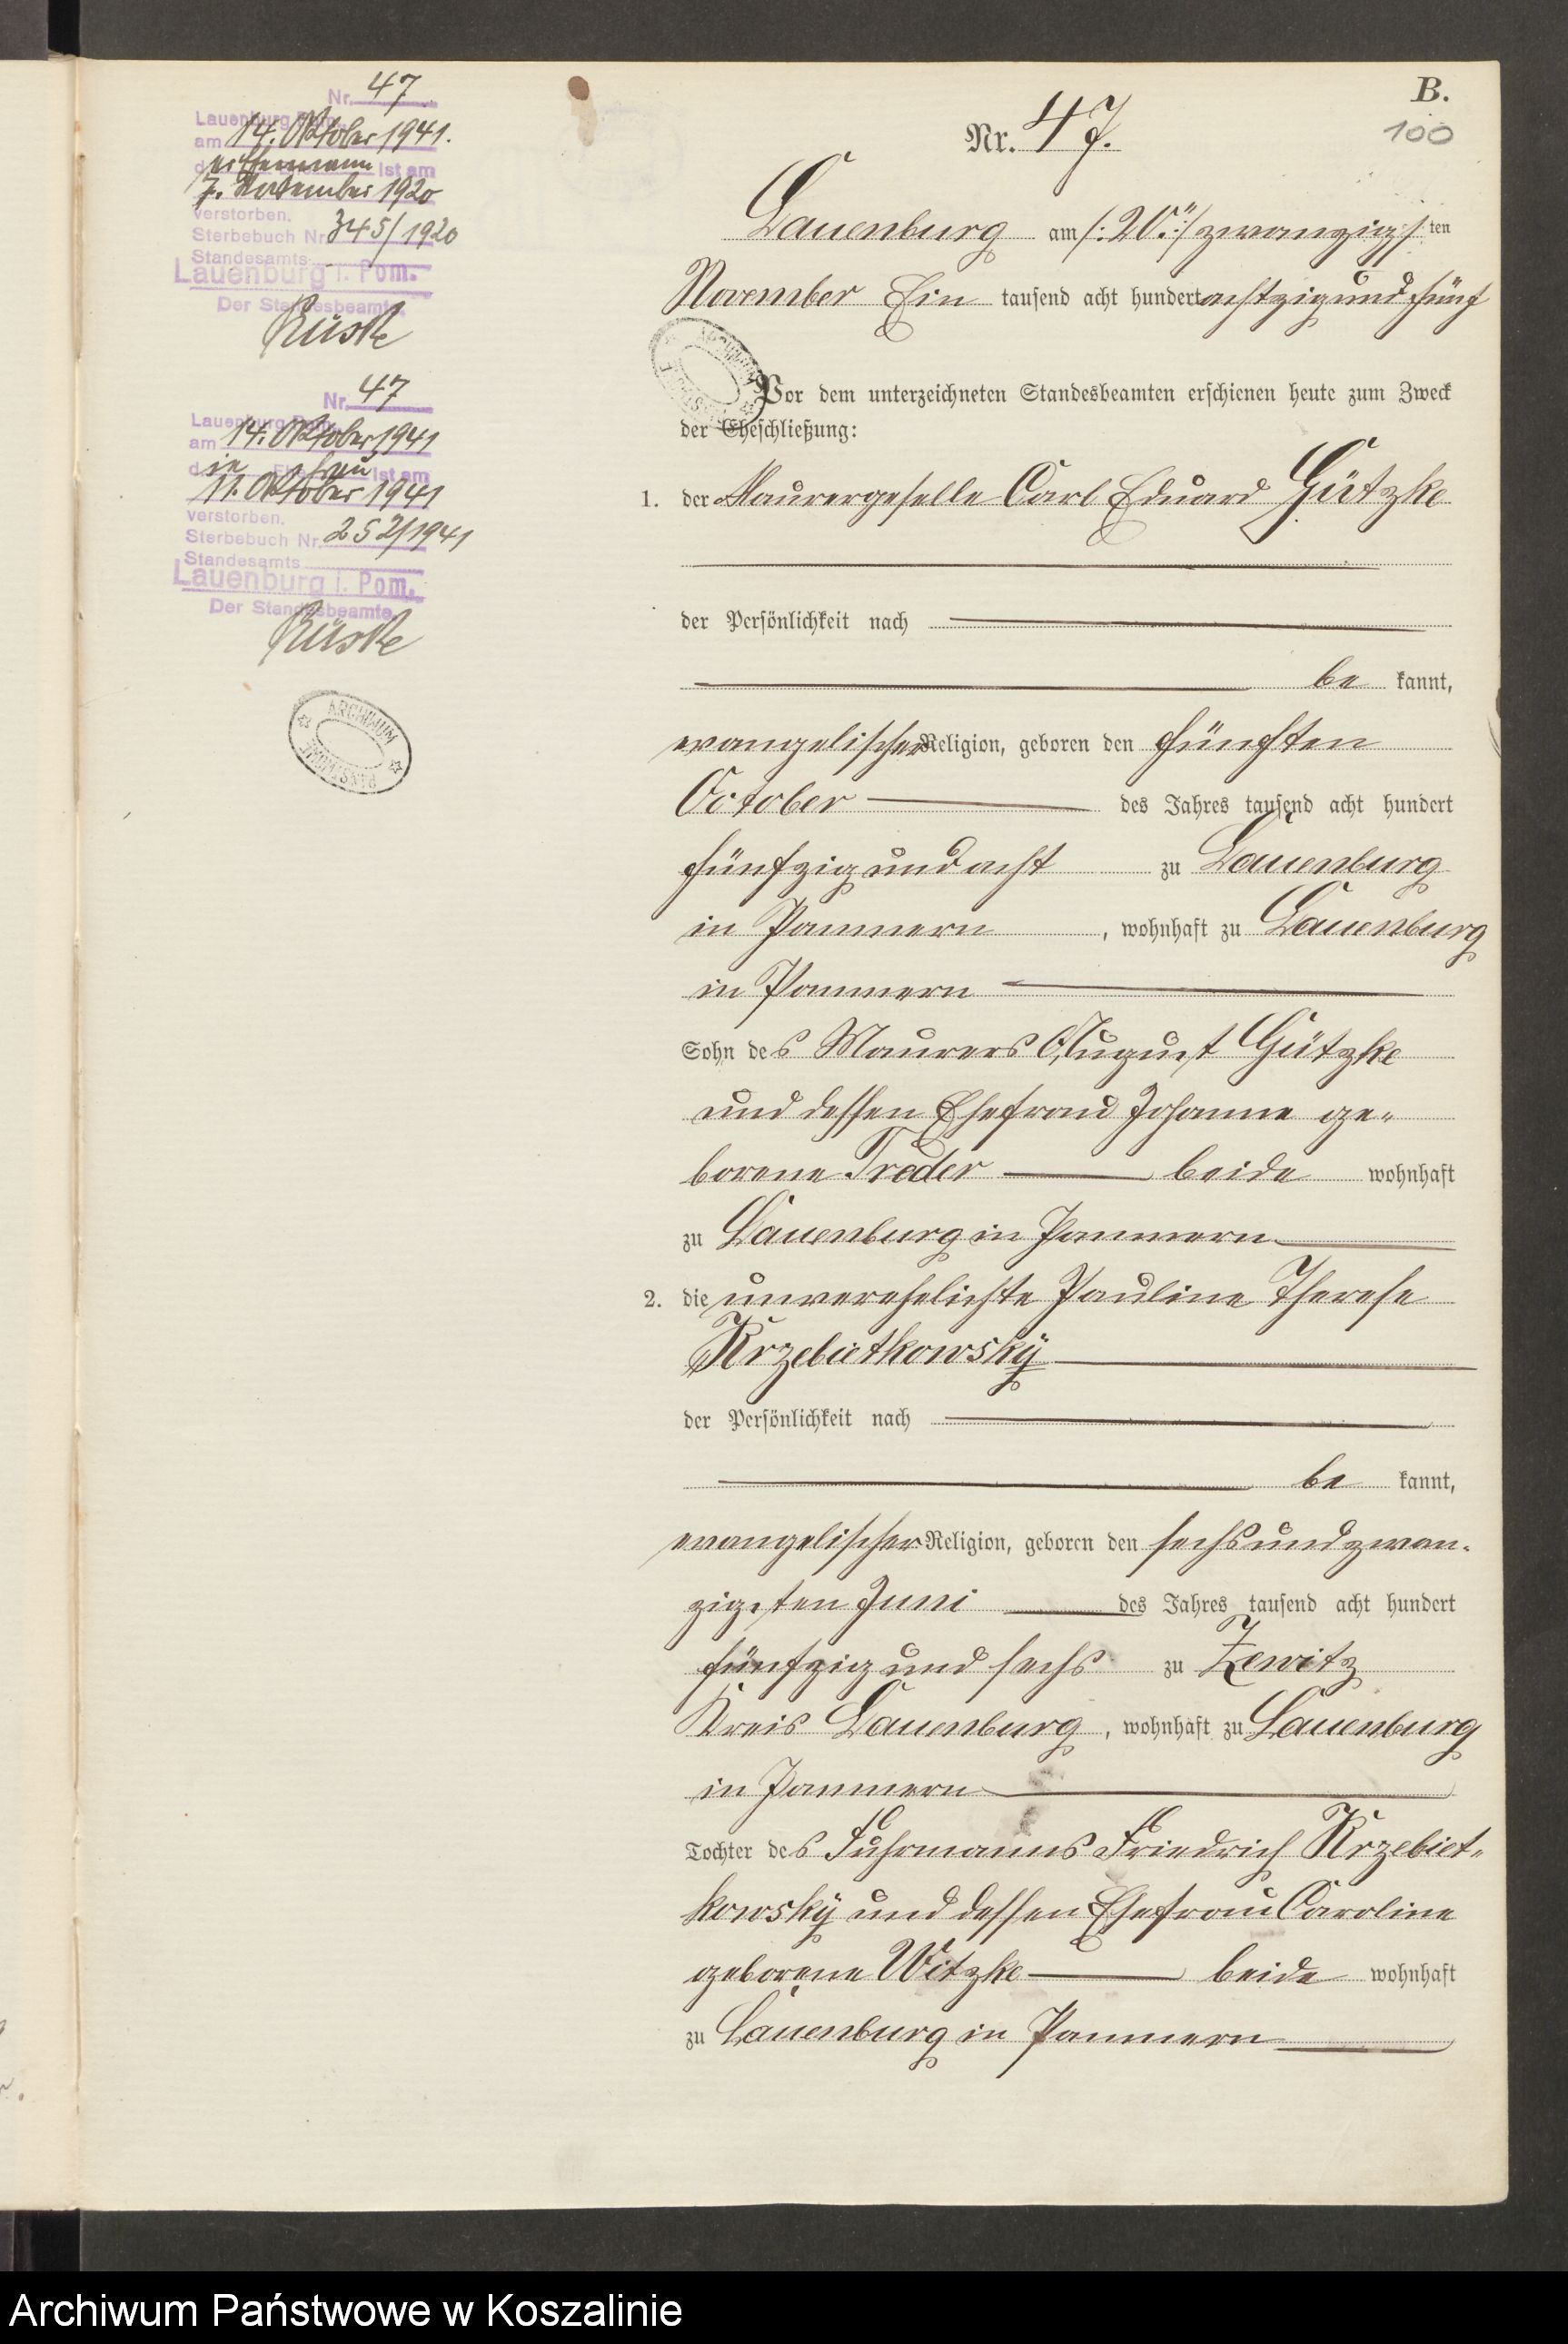 Nr. 47
Lauenburg Pom.
am 14. Oktober 1941.
der Ehemann ist am
7. November 1920
verstorben.
Sterbebuch Nr. 345/1920
Standesamts
Lauenburg i. Pom.
Der Standesbeamte
Nr. 47
Lauenburg Pom.
am 14. Oktober 1941
die Ehefrau ist am
11. Oktober 1941
verstorben.
Sterbebuch Nr. 252/1941
Standesamts
Lauenburg i. Pom.
Der Standesbeamte
ARCHIWUM
PAŃSTWOWE
B.
100
Nr. 47.
Lauenburg am /:20.:/ zwanzigsten
November Ein tausend acht hundert achtzig und fünf
Vor dem unterzeichneten Standesbeamten erschienen heute zum Zweck
der Eheschließung:
1. der Maurergeselle Carl Eduard Gützke
der Persönlichkeit nach
be kannt,
evangelischer Religion, geboren den fünften
October des Jahres tausend acht hundert
fünfzig und acht zu Lauenburg
in Pommern, wohnhaft zu Lauenburg
in Pommern
Sohn des Maurers August Gützke
und dessen Ehefrau Johanne ge-
borene Treder beide wohnhaft
zu Lauenburg in Pommern
2. die unverehelichte Pauline Therese
Krzebietkowsky
der Persönlichkeit nach
be kannt,
evangelischer Religion, geboren den sechsundzwan-
zigsten Juni des Jahres tausend acht hundert
fünfzig und sechs zu Zewitz
Kreis Lauenburg, wohnhaft zu Lauenburg
in Pommern
Tochter des Fuhrmanns Friedrich Krzebiet-
kowsky und dessen Ehefrau Caroline
geborene Witzke beide wohnhaft
zu Lauenburg in Pommern
Archiwum Państwowe w Koszalinie